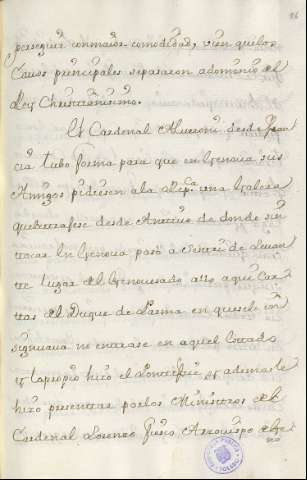 86
perseguir con maior comodidad, vien que los
Cavos principales separaron a dominio del
Rey Christianisimo.
El Cardenal Alveroni desde Fran
cia tubo forma para que en Genova sus
Amigos pidiesen a la Repca una Galera
que
desde Antivo de donde sin
tocar en Genova pasó a Sestri de Levan
te lugar del Genovesado alli aqui Car
tas del Duque de Parma en que se le in
signuava no entrase en aquel Estado
y lo propio hizo el Pontifice y ademas le
hizo presentar por los Ministros del
Cardenal Lorenzo Fiesco Arzovispo de Ge
no